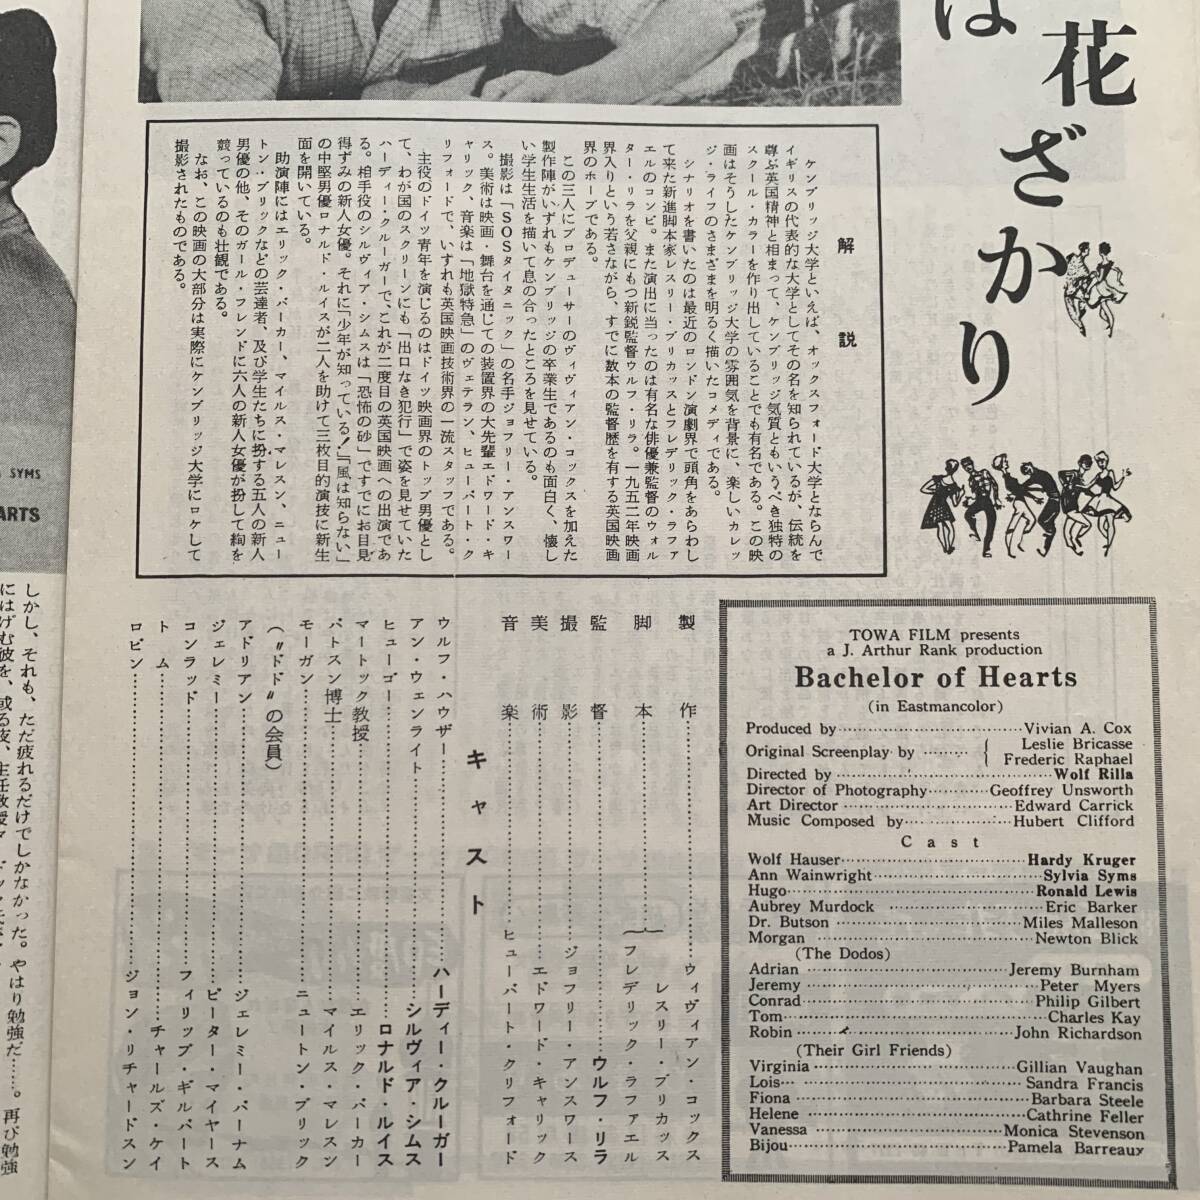 花ざかり
は
解説
ケンブリッジ大学といえば、オックスフォード大学とならんで
イギリスの代表的な大学としてその名を知られているが、伝統を
尊ぶ英国精神と相まって、ケンブリッジ気質ともいうべき独特の
スクール・カラーを作り出していることでも有名である。この映
画はそうしたケンブリッジ大学の雰囲気を背景に、楽しいカレッ
ジ・ライフのさまざまを明るく描いたコメディである。
シナリオを書いたのは最近のロンドン演劇界で頭角をあらわし
て来た新進脚本家レスリー・ブリカッスとフレデリック・ラファ
エルのコンビ。また演出に当ったのは有名な俳優兼監督のウォル
ター・リラを父親にもつ新鋭監督ウルフ・リラ。一九五二年映画
界入りという若さながら、すでに数本の監督歴を有する英国映画
界のホープである。
この三人にプロデューサーのヴィヴィアン・コックスを加えた
製作陣がいずれもケンブリッジの卒業生であるのも面白く、懐し
い学生生活を描いて息の合ったところを見せている。
撮影は「SOSタイタニック」の名手ジョフリー・アンスワー
ス。美術は映画・舞台を通じての装置界の大先輩エドワード・キ
ャリック、音楽は「地獄特急」のヴェテラン、ヒューバート・ク
リフォードで、いずれも英国映画技術界の一流スタッフである。
主役のドイツ青年を演じるのはドイツ映画界のトップ男優とし
て、わが国のスクリーンにも「出口なき犯行」で姿を見せていた
ハーディー・クルーガーで、これが二度目の英国映画への出演であ
る。相手役のシルヴィア・シムスは「恐怖の砂」ですでにお目見
得ずみの新人女優。それに「少年が知っている!」「風は知らない」
の中堅男優ロナルド・ルイスが二人を助けて三枚目的演技に新生
面を開いている。
助演陣にはエリック・バーカー、マイルス・マレスン、ニュー
トン・ブリックなどの芸達者、及び学生たちに扮する五人の新人
男優の他、そのガール・フレンドに六人の新人女優が扮して絢を
競っているのも壮観である。
なお、この映画の大部分は実際にケンブリッジ大学にロケして
撮影されたものである。
製作……ウィヴィアン・コックス
脚本……レスリー・ブリカッス
フレデリック・ラファエル
監督……ウルフ・リラ
撮影……ジョフリー・アンスワース
美術……エドワード・キャリック
音楽……ヒューバート・クリフォード
キャスト
ウルフ・ハウザー……ハーディー・クルーガー
アン・ウェンライト……シルヴィア・シムス
ヒューゴー……ロナルド・ルイス
マートック教授……エリック・バーカー
バトスン博士……マイルス・マレスン
モーガン……ニュートン・ブリック
(〝ドド〟の会員)
アドリアン……ジェレミー・バーナム
ジェレミー……ピーター・マイヤース
コンラッド……フィリップ・ギルバート
トム……チャールズ・ケイ
ロビン……ジョン・リチャードスン
TOWA FILM presents
a J. Arthur Rank production
Bachelor of Hearts
(in Eastmancolor)
Produced by……Vivian A. Cox
Original Screenplay by……{ Leslie Bricasse
Frederic Raphael
Directed by……Wolf Rilla
Director of Photography……Geoffrey Unsworth
Art Director……Edward Carrick
Music Composed by……Hubert Clifford
Cast
Wolf Hauser……Hardy Kruger
Ann Wainwright……Sylvia Syms
Hugo……Ronald Lewis
Aubrey Murdock……Eric Barker
Dr. Butson……Miles Malleson
Morgan……Newton Blick
(The Dodos)
Adrian……Jeremy Burnham
Jeremy……Peter Myers
Conrad……Philip Gilbert
Tom……Charles Kay
Robin……John Richardson
(Their Girl Friends)
Virginia……Gillian Vaughan
Lois……Sandra Francis
Fiona……Barbara Steele
Helene……Cathrine Feller
Vanessa……Monica Stevenson
Bijou……Pamela Barreaux
SYMS
ARTS
しかし、それも、ただ疲れるだけでしかなかった。やはり勉強だ……。再び勉強
にはげむ彼を、或る夜、主任教授